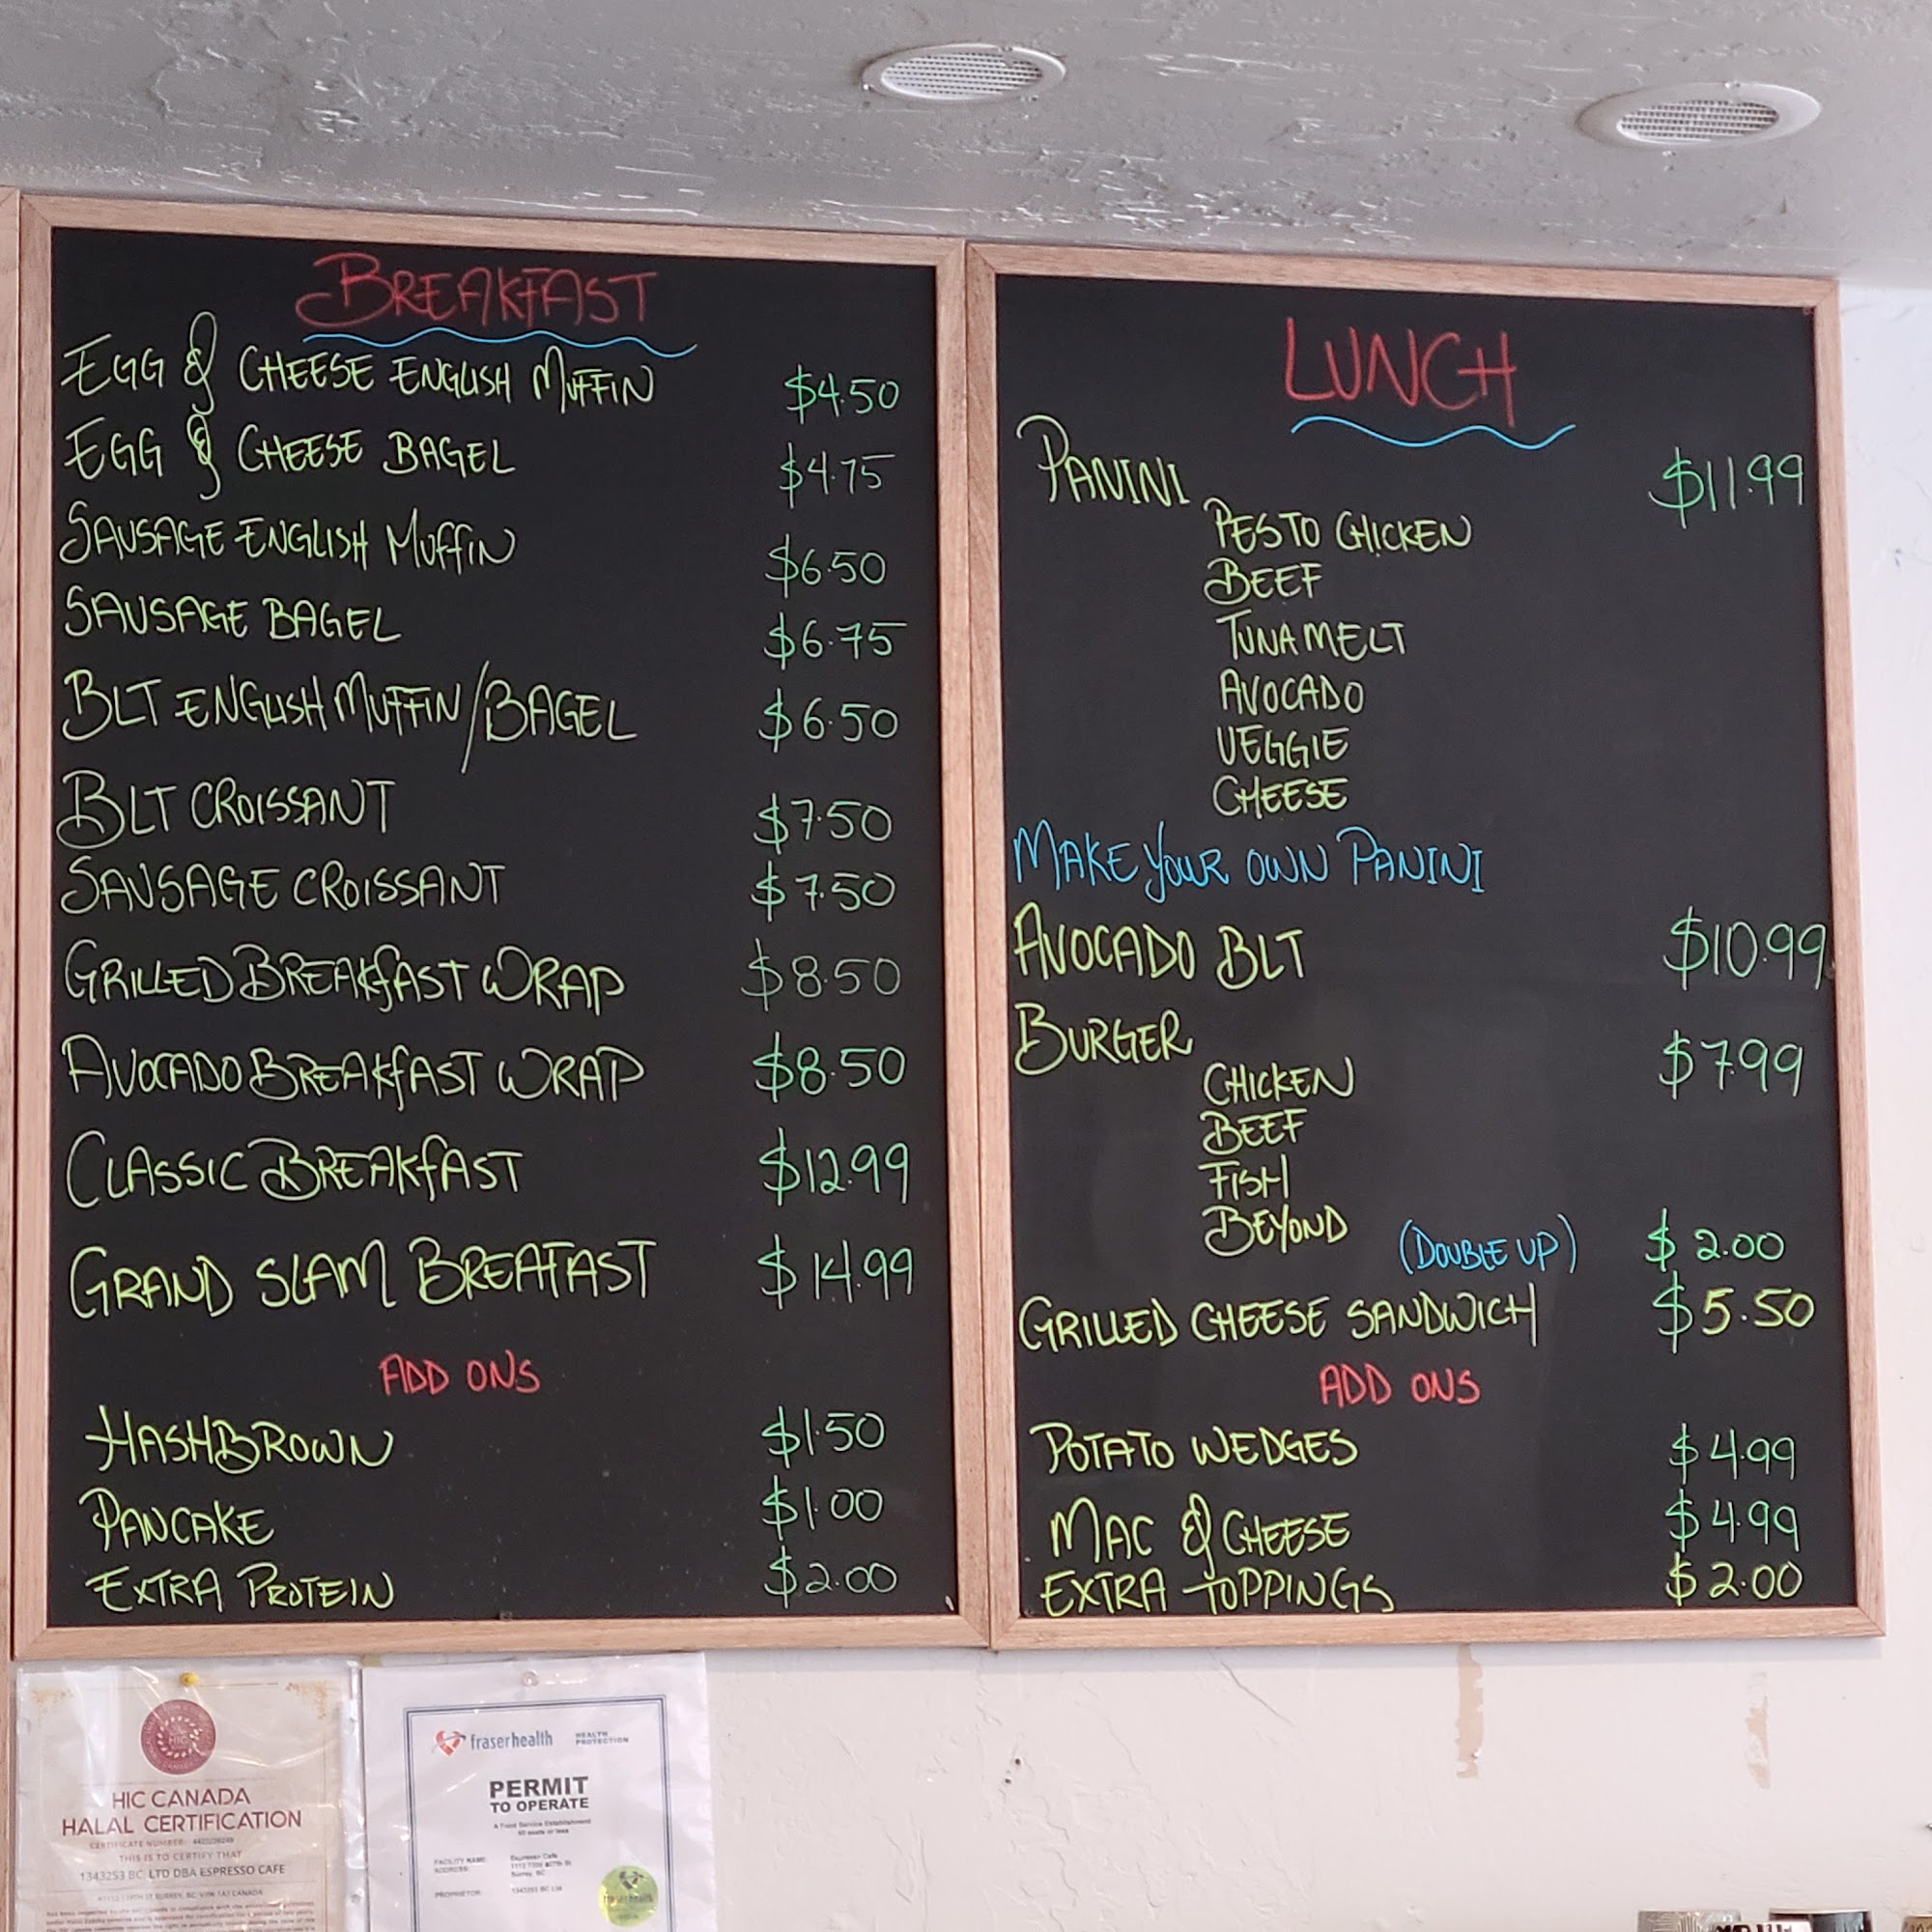 BREAKFAST
EGG & CHEESE ENGLISH MUFFIN $4.50
EGG & CHEESE BAGEL $4.75
SAUSAGE ENGLISH MUFFIN $6.50
SAUSAGE BAGEL $6.75
BLT ENGLISH MUFFIN/BAGEL $6.50
BLT CROISSANT $7.50
SAUSAGE CROISSANT $7.50
GRILLED BREAKFAST WRAP $8.50
AVOCADO BREAKFAST WRAP $8.50
CLASSIC BREAKFAST $12.99
GRAND SLAM BREAFAST $14.99
ADD ONS
HASHBROWN $1.50
PANCAKE $1.00
EXTRA PROTEIN $2.00
LUNCH
PANINI $11.99
PESTO CHICKEN
BEEF
TUNA MELT
AVOCADO
VEGGIE
CHEESE
MAKE YOUR OWN PANINI
AVOCADO BLT $10.99
BURGER $7.99
CHICKEN
BEEF
FISH
BEYOND (DOUBLE UP) $2.00
GRILLED CHEESE SANDWICH $5.50
ADD ONS
POTATO WEDGES $4.99
MAC & CHEESE $4.99
EXTRA TOPPINGS $2.00
HIC
HIC CANADA
HALAL CERTIFICATION
CERTIFICATE NUMBER:
THIS IS TO CERTIFY THAT
1343253 BC LTD DBA ESPRESSO CAFE
fraserhealth HEALTH PROTECTION
PERMIT
TO OPERATE
A Food Service Establishment
FACILITY NAME: Espresso Cafe
ADDRESS:
Surrey, BC
PROPRIETOR: 1343253 BC Ltd